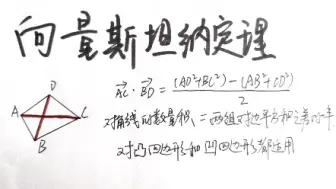 向量斯坦纳定理
D
A
C
B
AC·BD = (AD²+BC²)-(AB²+CD²) / 2
对角线的数量积 = 两组对边平方和之差的一半
对凸四边形和凹四边形都适用